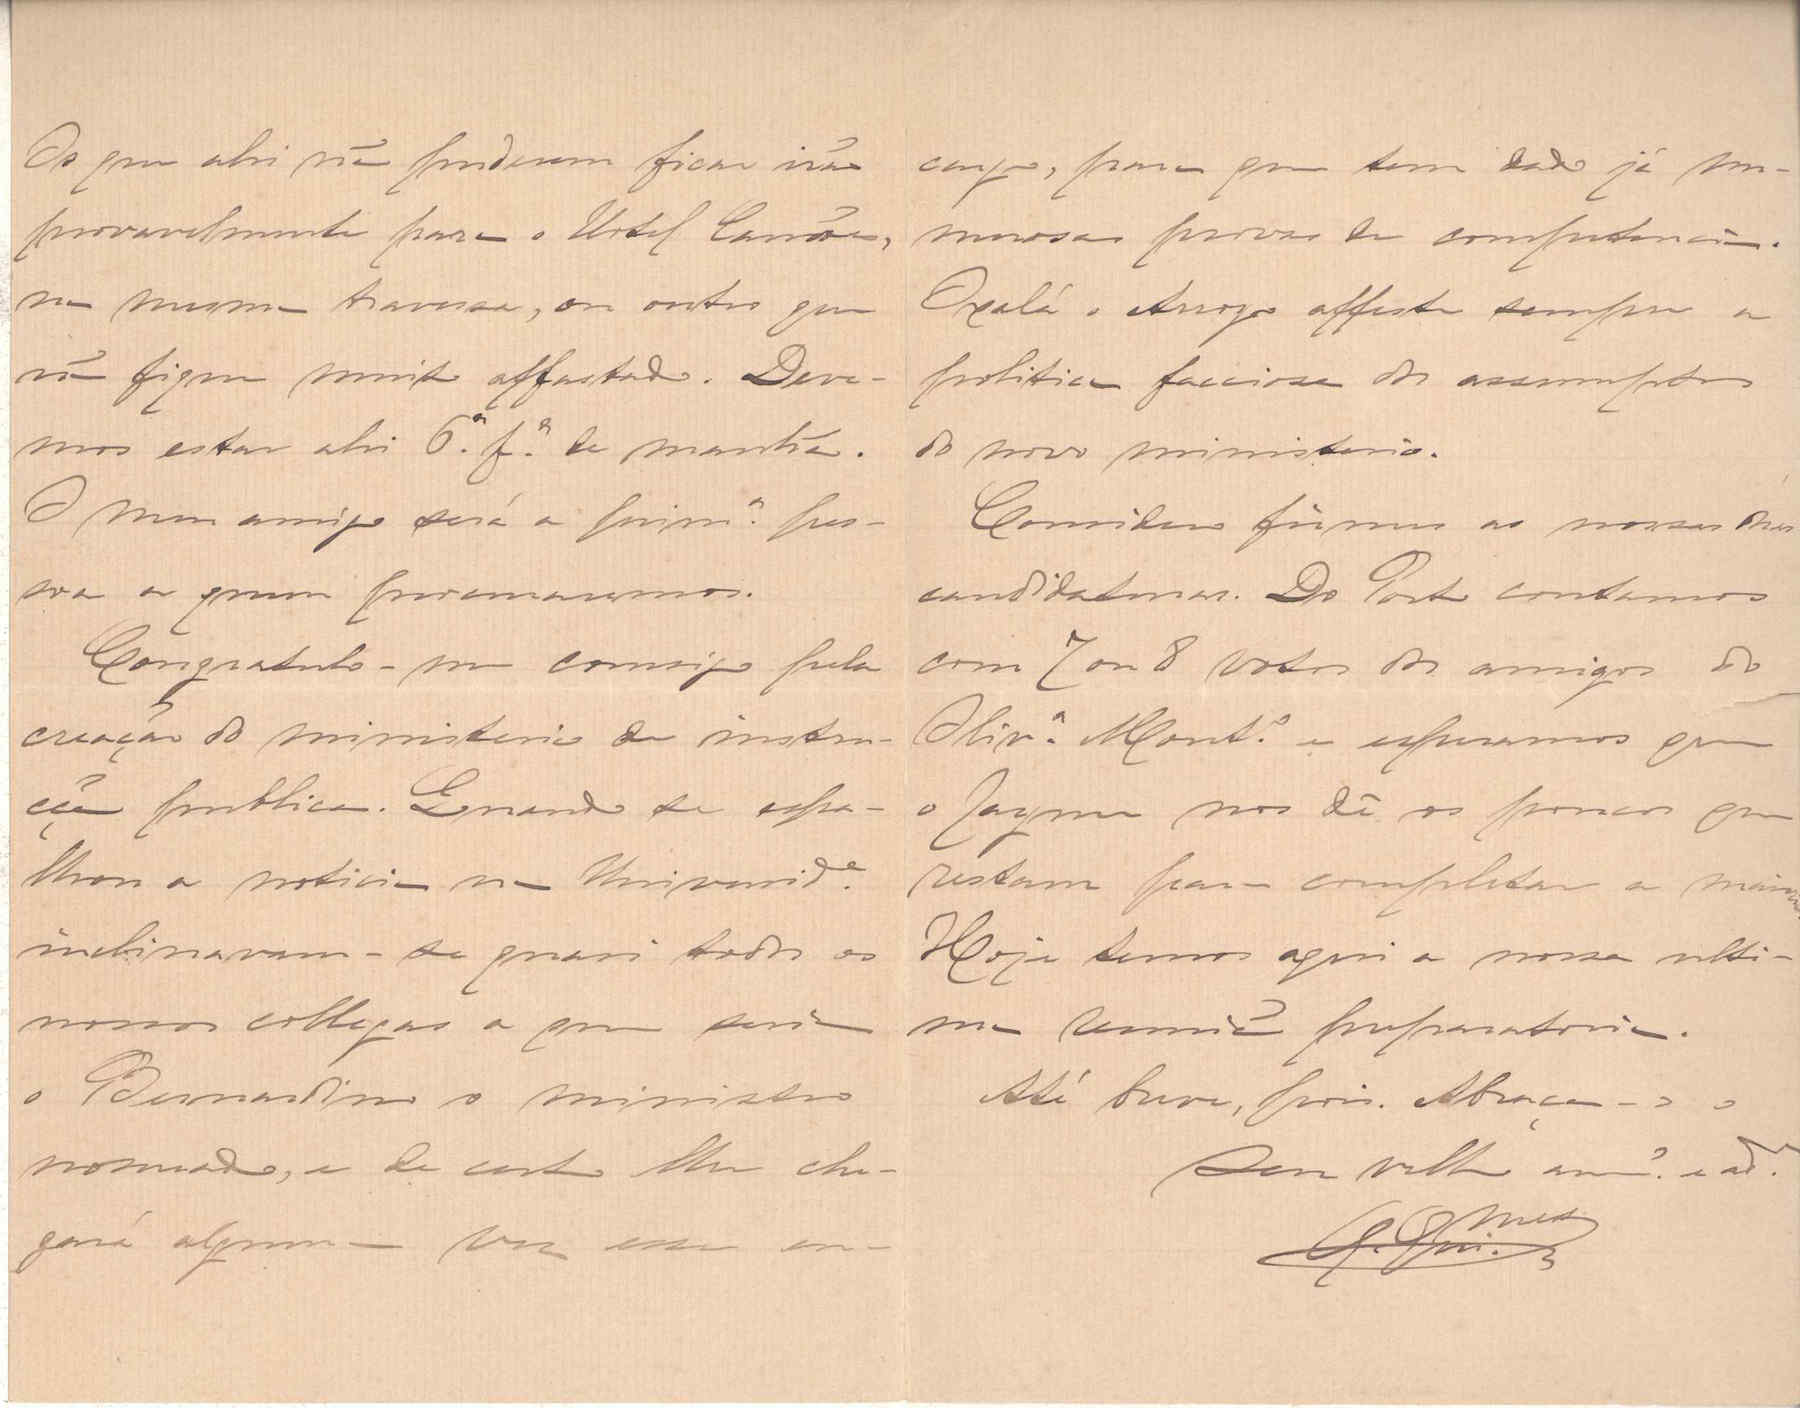 Os que ahi não puderem ficar irão
provavelmente para o Hotel Camões,
na mesma travessa, ou outro que
não fique muito affastado. Deve-
mos estar ahi 6.ª f.ª de manhã.
O meu amigo será a prim.ª pes-
soa a quem procuraremos.
Congratulo-me comsigo pela
creação do ministerio da instru-
cção publica. Quando se espa-
lhou a noticia na Universid.e
inclinavam-se quasi todos os
nossos collegas a que seria
o Bernardino o ministro
nomeado, e de certo lhe che-
gará alguma vez esse en-
cargo, para que tem dado já nu-
merosas provas de competencia.
Oxalá o Arroyo affaste sempre a
politica facciosa dos assumptos
do novo ministerio.
Considero firmes as nossas duas
candidaturas. Do Porto contamos
com 7 ou 8 votos dos amigos do
Oliv.ª Mont.º e esperamos que
o Jayme nos dê os poucos que
restam para completar a maioria.
Hoje temos aqui a nossa ulti-
ma reunião preparatoria.
Até breve, pois. Abraça-o o
Seu velho am.º e ad.